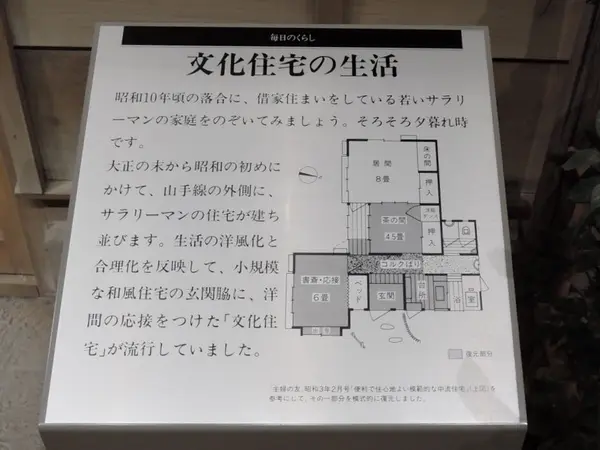 毎日のくらし
文化住宅の生活
昭和10年頃の落合に、借家住まいをしている若いサラリ
ーマンの家庭をのぞいてみましょう。そろそろ夕暮れ時
です。
大正の末から昭和の初めに
かけて、山手線の外側に、
サラリーマンの住宅が建ち
並びます。生活の洋風化と
合理化を反映して、小規模
な和風住宅の玄関脇に、洋
間の応接をつけた「文化住
宅」が流行していました。
居間
8畳
床の間
押入
茶の間
4.5畳
押入
コルクばり
書斎・応接
6畳
ベッド
玄関
台所
浴室
復元部分
主婦の友、昭和3年2月号「便利で住心地よい模範的な中流住宅」(上図)を
参考にして、その一部分を模式的に復元しました。